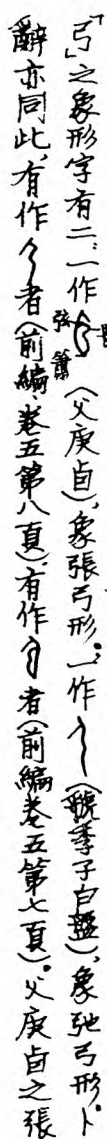 「弓」之象形字有二：一作（父庚卣），象張弓形；一作（虢季子白盤），象弛弓形。卜
辭亦同此，有作者（前編、卷五第八頁）；有作者（前編卷五第七頁）。父庚卣之張